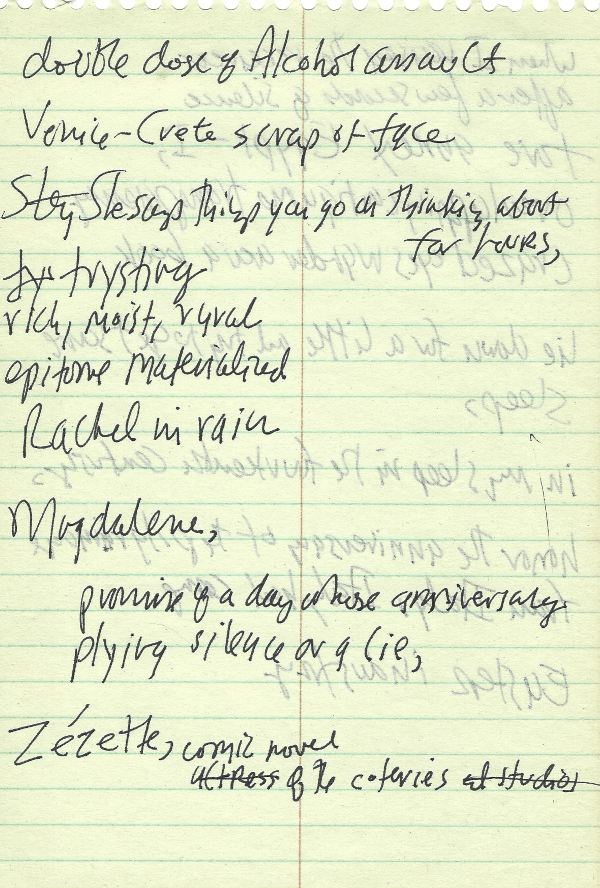 double dose of Alcohol assaults
Venice-Crete scrap of face
She says things you go on thinking about
for hours,
trysting
rich, moist, rural
epitome materialized
Rachel in rain
Magdalene,
promise of a day whose anniversary
plying silence or a lie,
Zézette, comic novel
actress of the coteries at studios